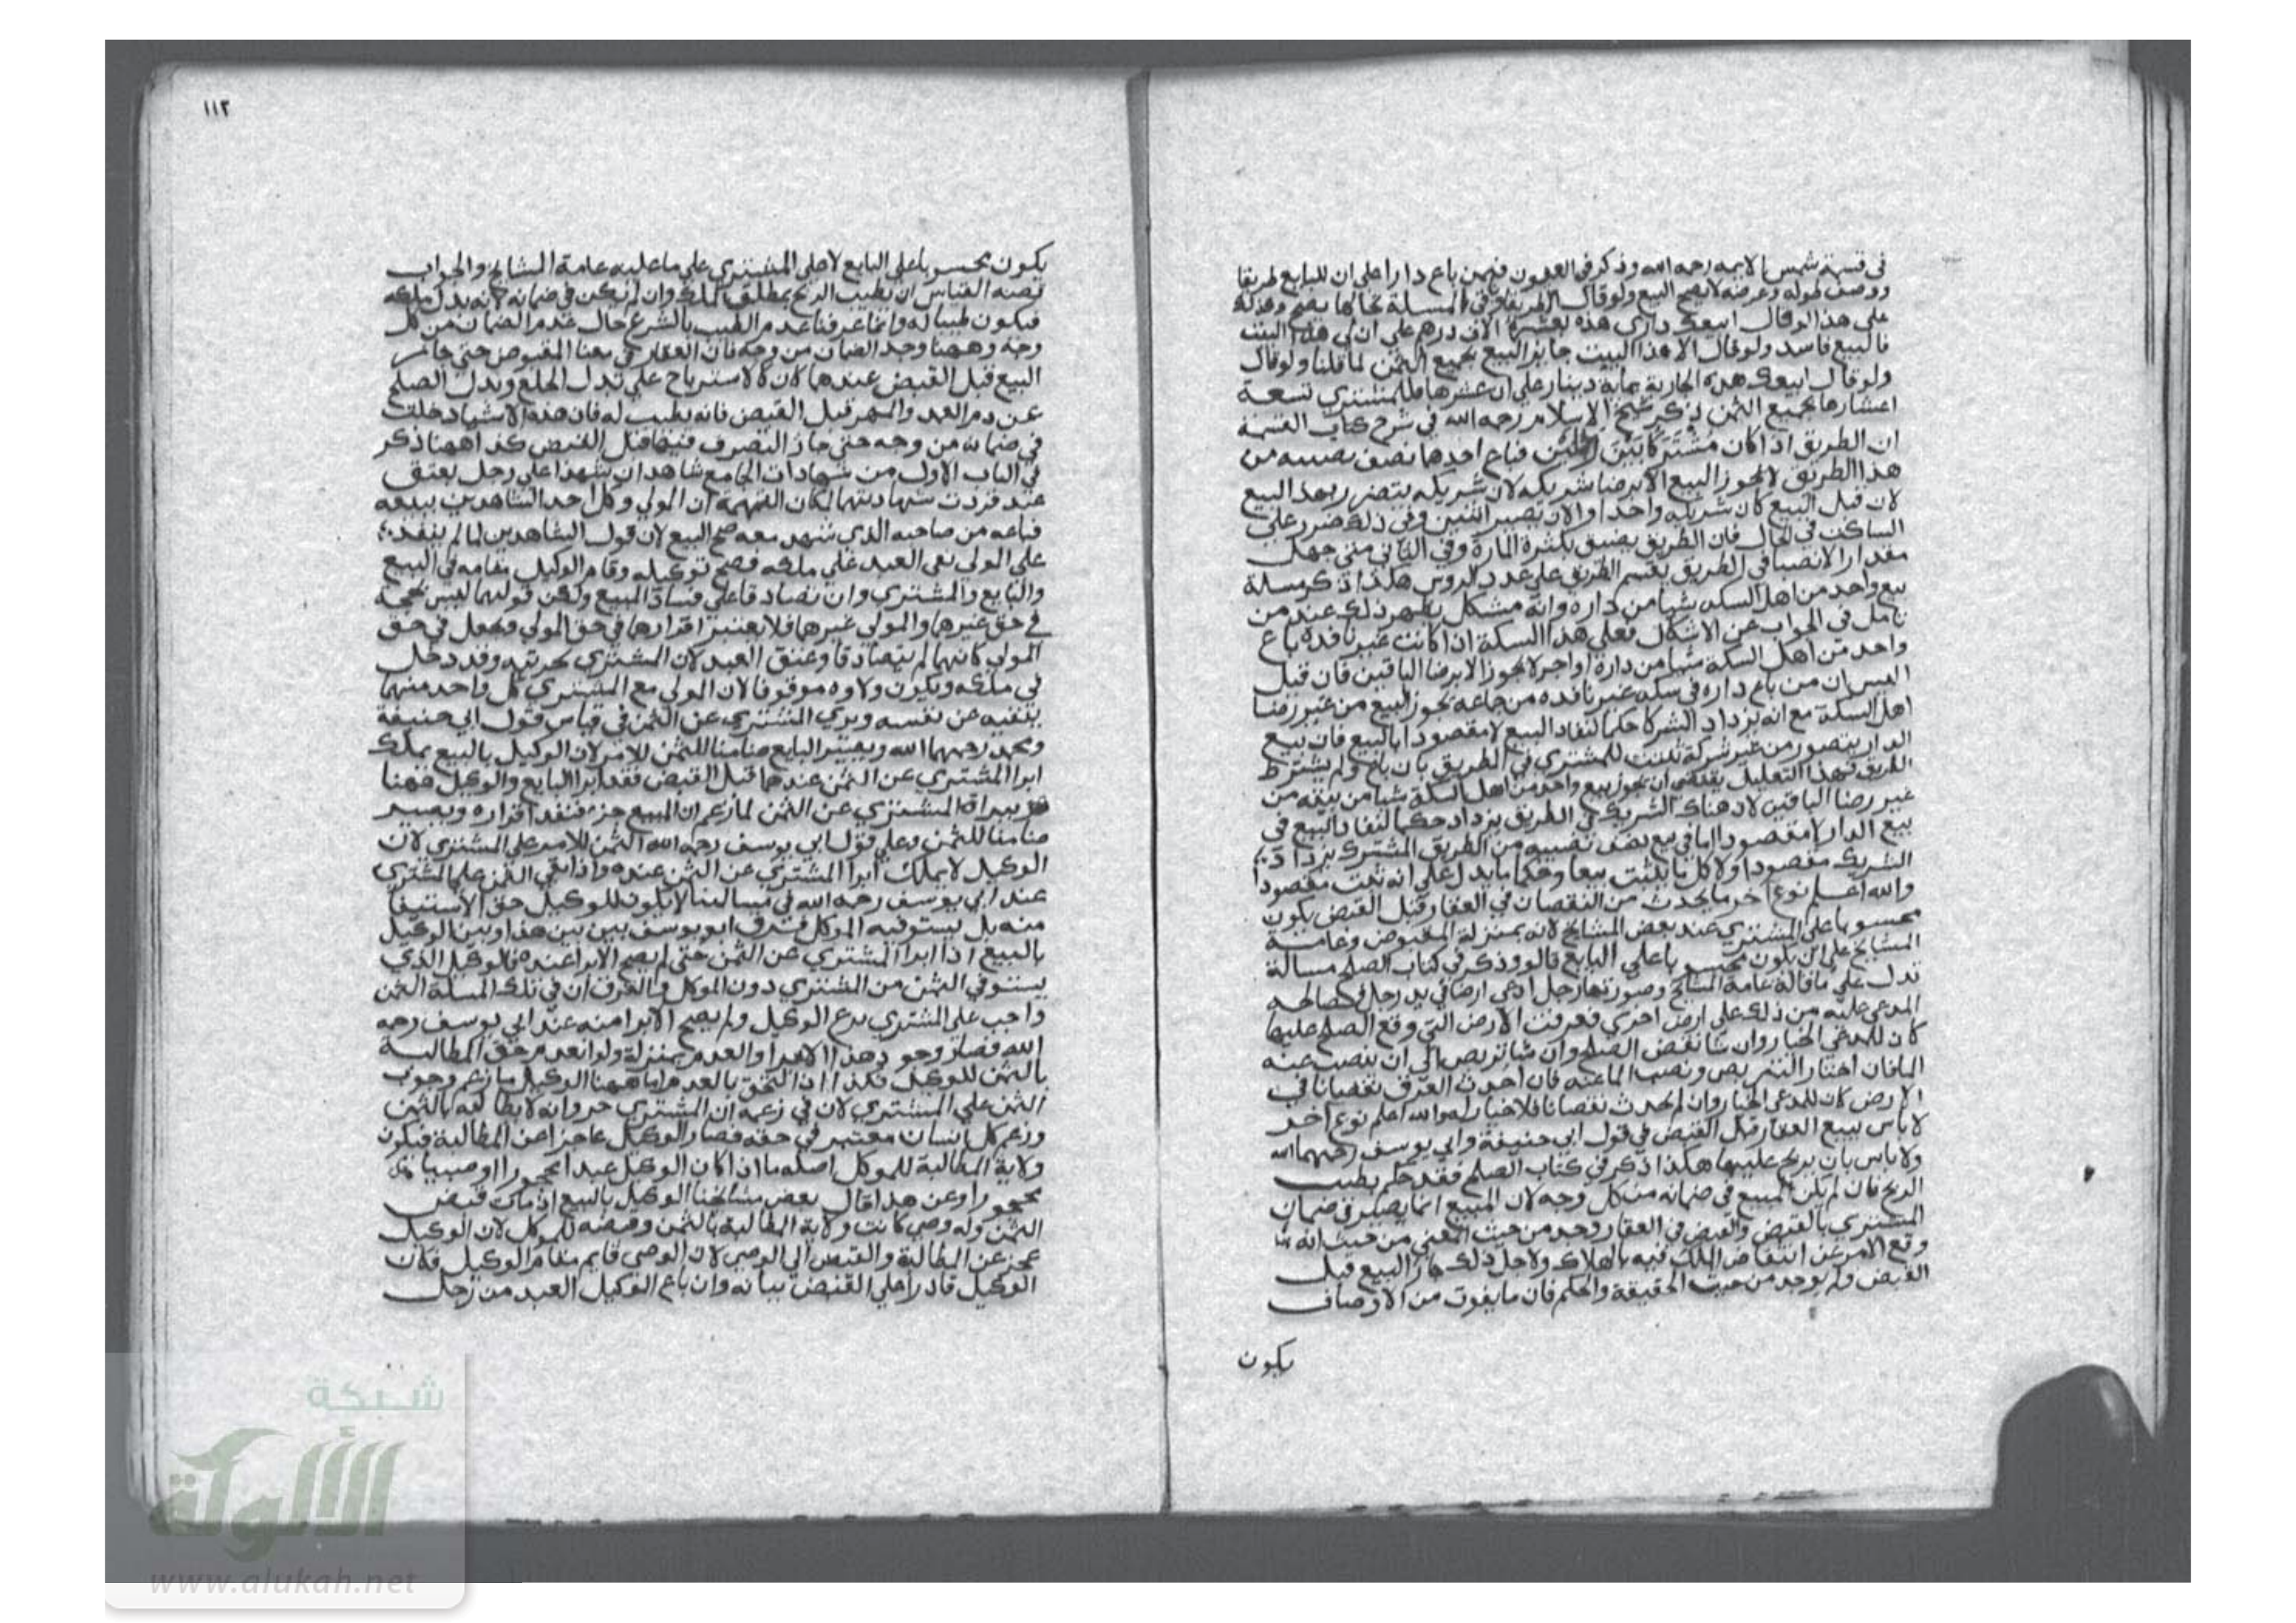 في قسمة شمس الايمه رحمه الله وذكر في العيون فيمن باع دارا على ان للبايع طريقا
ووصف طوله وعرضه لا يصح البيع ولو قال الا طريقا وفي المسلة بحالها يصح وهذا
على هذا لو قال ابيعك داري هذه بعشرة الاف درهم على ان لي هذا البيت
فالبيع فاسد ولو قال الا هذا البيت جايز البيع بجميع الثمن لما قلنا ولو قال
ولو قال ابيعك هذه الجارية بماية دينار على ان عشرها فللمشتري تسعة
اعشارها بجميع الثمن ذكر شيخ الاسلام رحمه الله في شرح كتاب القسمة
ان الطريق اذا كان مشتركا بين رجلين فباع احدهما نصف نصيبه من
هذا الطريق لا يجوز البيع الا برضا شريكه لان شريكه يتضرر بهذا البيع
لان قبل البيع كان شريكه واحدا والان يصير اثنين وفي ذلك ضرر على
الساكت في الحال فان الطريق يضيق بكثرة المارة وفي الثاني متى جهل
مقدار الانصبا في الطريق يقسم الطريق على عدد الروس هكذا ذكر مسلة
بيع واحد من اهل السكه شيا من داره وانه مشكل يظهر ذلك عند من
تامل في الجواب عن الاشكال فعلى هذا السكة اذا كانت غير نافذه باع
واحد من اهل السكة شيا من داره او اجر لا يجوز الا برضا الباقين فان قيل
اليس ان من باع داره في سكه غير نافذه من جماعه يجوز البيع من غير رضا
اهل السكة مع انه يزداد الشركا حكما لنفاد البيع لا مقصودا بالبيع فان بيع
الدار يتصور من غير شركة تثبت للمشتري في الطريق بان باع ولم يشترط
الطريق فهذا التعليل يقتضي ان يجوز بيع واحد من اهل السكة شيا من بيته من
غير رضا الباقين لان هناك الشريك في الطريق يزداد حكما لنفاد البيع في
بيع الدار لا مقصودا اما في بيع نصف نصيبه من الطريق المشترك يزداد
الشريك مقصودا ولا كل ما يثبت بيعا وحكما ما يدل على انه تثبت مقصودا
والله اعلم نوع اخر ما يحدث من النقصان في العقار قبل القبض يكون
محسوبا على المشتري عند بعض المشايخ لانه بمنزلة المقبوض وعامة
المشايخ على ان يكون محسوبا على البايع قالوا وذكر في كتاب الصلح مسالة
تدل على ما قاله عامة المشايخ وصورتها رجل ادعى ارضا في يد رجل فصالحه
المدعى عليه من ذلك على ارض اخرى فغرقت الارض التي وقع الصلح عليها
كان للمدعي الخيار وان شا نقض الصلح وان شا تربص الى ان ينضب عنه
الما فان اختار التربص ونضب الما عنه فان احدث الغرق نقصانا في
الارض كان للمدعي الخيار وان لم يحدث نقصانا فلا خيار له والله اعلم نوع اخر
لا باس ببيع العقار قبل القبض في قول ابي حنيفة وابي يوسف رحمهما الله
ولا باس بان يربح عليها هكذا ذكر في كتاب الصلح فقد حكم بطيب
الربح فان لم يكن المبيع في ضمانه من كل وجه لان المبيع انما يصير في ضمان
المشتري بالقبض والقبض في العقار وجد من حيث المعنى من حيث انه
وقع الامر عن انتقاض الملك فيه بالهلاك ولاجل ذلك جاز البيع قبل
القبض ولم يوجد من حيث الحقيقة والحكم فان ما يفوت من الاوصاف
يكون
١١٢
يكون محسوبا على البايع لا على المشتري على ما عليه عامة المشايخ والجواب
قضية القياس ان يطيب الربح بمطلق الملك وان لم يكن في ضمانه لانه بدل ملكه
فيكون طيبا له وانما عرفنا عدم الطيب بالشرع حال عدم الضمان من كل
وجه وههنا وجد الضمان من وجه فان العقار في معنا المقبوض حتى جاز
البيع قبل القبض عندهما كان كالاسترباح على بدل الخلع وبدل الصلح
عن دم العمد والمهر قبل القبض فانه يطيب له فان هذه الاشيا دخلت
في ضمانه من وجه حتى جاز التصرف فيها قبل القبض كذا ههنا ذكر
في الباب الاول من شهادات الجامع شاهدان شهدا على رجل بعتق
عبد فردت شهادتهما لمكان التهمة ان المولى وكل احد الشاهدين ببيعه
فباعه من صاحبه الذي شهد معه صح البيع لان قول الشاهدين لما لم ينفد
على المولى بقى العبد على ملكه فصح توكيله وقام الوكيل مقامه في البيع
والبايع والمشتري وان تصادقا على فساد المبيع ولكن قولهما ليس بحجة
في حق غيرهما والمولى غيرهما فلا يعتبر اقرارهما في حق المولى فجعل في حق
المولى كانهما لم يتصادقا وعتق العبد لان المشتري بحريته وقد دخل
في ملكه ويكون ولاوه موقوفا لان المولى مع المشتري كل واحد منهما
ينفيه عن نفسه وبري المشتري عن الثمن في قياس قول ابي حنيفة
ومحمد رحمهما الله ويصير البايع ضامنا للثمن للامر لان الوكيل بالبيع يملك
ابرا المشتري عن الثمن عندهما قبل القبض فقد ابرا البايع والوكيل ههنا
ببراة المشتري عن الثمن لما زعم ان المبيع حر فنفد اقراره ويصير
ضامنا للثمن وعلى قول ابي يوسف رحمه الله الثمن للامر على المشتري لان
الوكيل لا يملك ابرا المشتري عن الثمن عنده واذا بقي الثمن على المشتري
عند ابي يوسف رحمه الله في مسالتنا لا يكون للوكيل حق الاستيفا
منه بل يستوفيه الموكل فرق ابو يوسف بين هذا وبين الوكيل
بالبيع اذا ابرا المشتري عن الثمن حتى لم يصح الابرا عنده فالوكيل الذي
يستوفي الثمن من المشتري دون الموكل والفرق ان في تلك المسلة الثمن
واجب على المشتري بزعم الوكيل ولم يصح الابرا منه عند ابي يوسف رحمه
الله فصار وجود هذا الابرا والعدم بمنزلة ولو انعدم حق المطالبة
بالثمن للوكيل فكذا اذا التحق بالعدم اما ههنا الوكيل ما زعم وجوب
الثمن على المشتري لان في زعمه ان المشتري حر وانه لا يطالبه بالثمن
وزعم كل انسان معتبر في حقه فصار الوكيل عاجزا عن المطالبة فيكون
ولاية المطالبة للموكل اصله ما اذا كان الوكيل عبدا محجورا او صبيا
محجورا وعن هذا قال بعض مشايخنا الوكيل بالبيع اذ مات قبض
الثمن وله وصي كانت ولاية المطالبة بالثمن وقبضه للموكل لان الوكيل
عجز عن المطالبة والقبض الى الوصي لان الوصي قايم مقام الوكيل فكان
الوكيل قادرا على القبض بيانه وان باع الوكيل العبد من رجل
شبكة
الألوكة
www.alukah.net